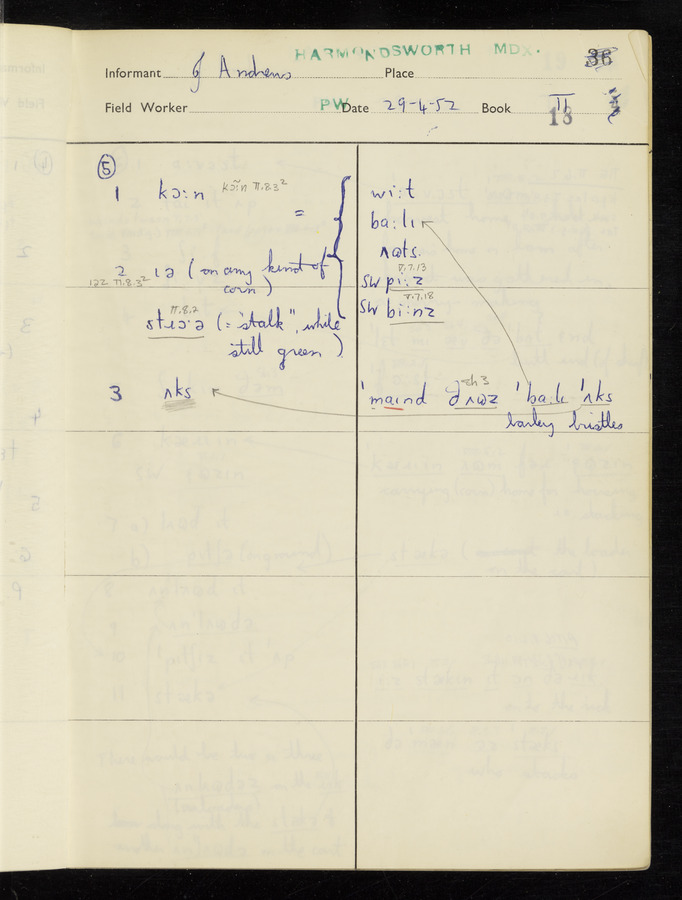 HARMONDSWORTH MDX.
36
Informant J Andrews Place
Field Worker PW Date 29-4-52 Book II
13
⑤
1 kɔ:n kɔ̃:n II.8.3² =
wi:t
ba:lɪ
ʌɷts.
2 ɪə (on any kind of
122 II.8.3² corn)
V.7.13
SW pi:z
V.7.18
SW bi:nz
II.8.2
stɪɔ:ə (= "stalk", while
still green)
3 ʌks
ˈmaɪnd ðʌɷz ˈba:lɪ ˈʌks
barley bristles